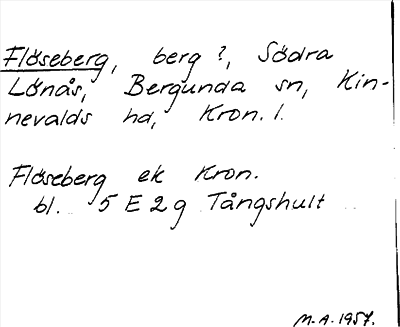 Flöseberg, berg ?, Södra
Lönås, Bergunda sn, Kin-
nevalds hd, Kron. l.
Flöseberg ek Kron.
bl. 5 E 2 g Tångshult
M.A. 1957.